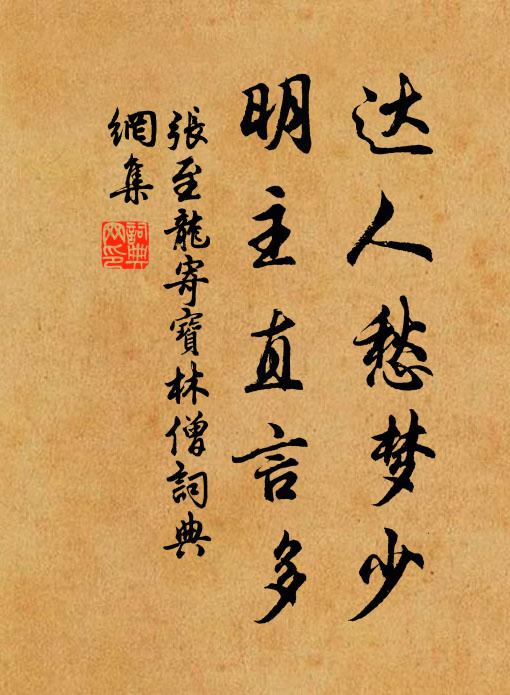 达人愁梦少
明主直言多
張至龍寄寶林僧詞典
網集
詞典
网印